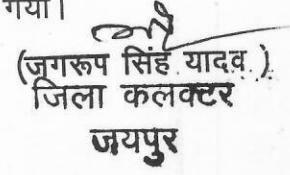 गया।
(जगरूप सिंह यादव)
जिला कलक्टर
जयपुर